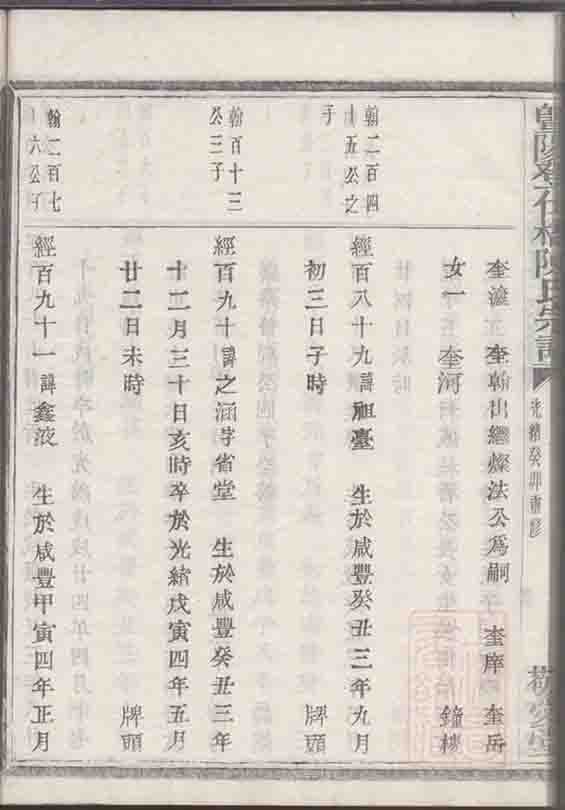 陳氏宗譜
光緒癸卯重修
奎瀛 奎翰出繼燦法公爲嗣 奎庠 奎岳
女一 奎河 鐘樓
翰二百四
十五公之
子
經百八十九諱祖臺 生於咸豐癸丑三年九月
初三日子時 牌頭
翰百十三
公三子
經百九十諱之涵字省堂 生於咸豐癸丑三年
十二月三十日亥時卒於光緒戊寅四年五月
廿二日未時 牌頭
翰二百七
十六公子
經百九十一諱鑫液 生於咸豐甲寅四年正月